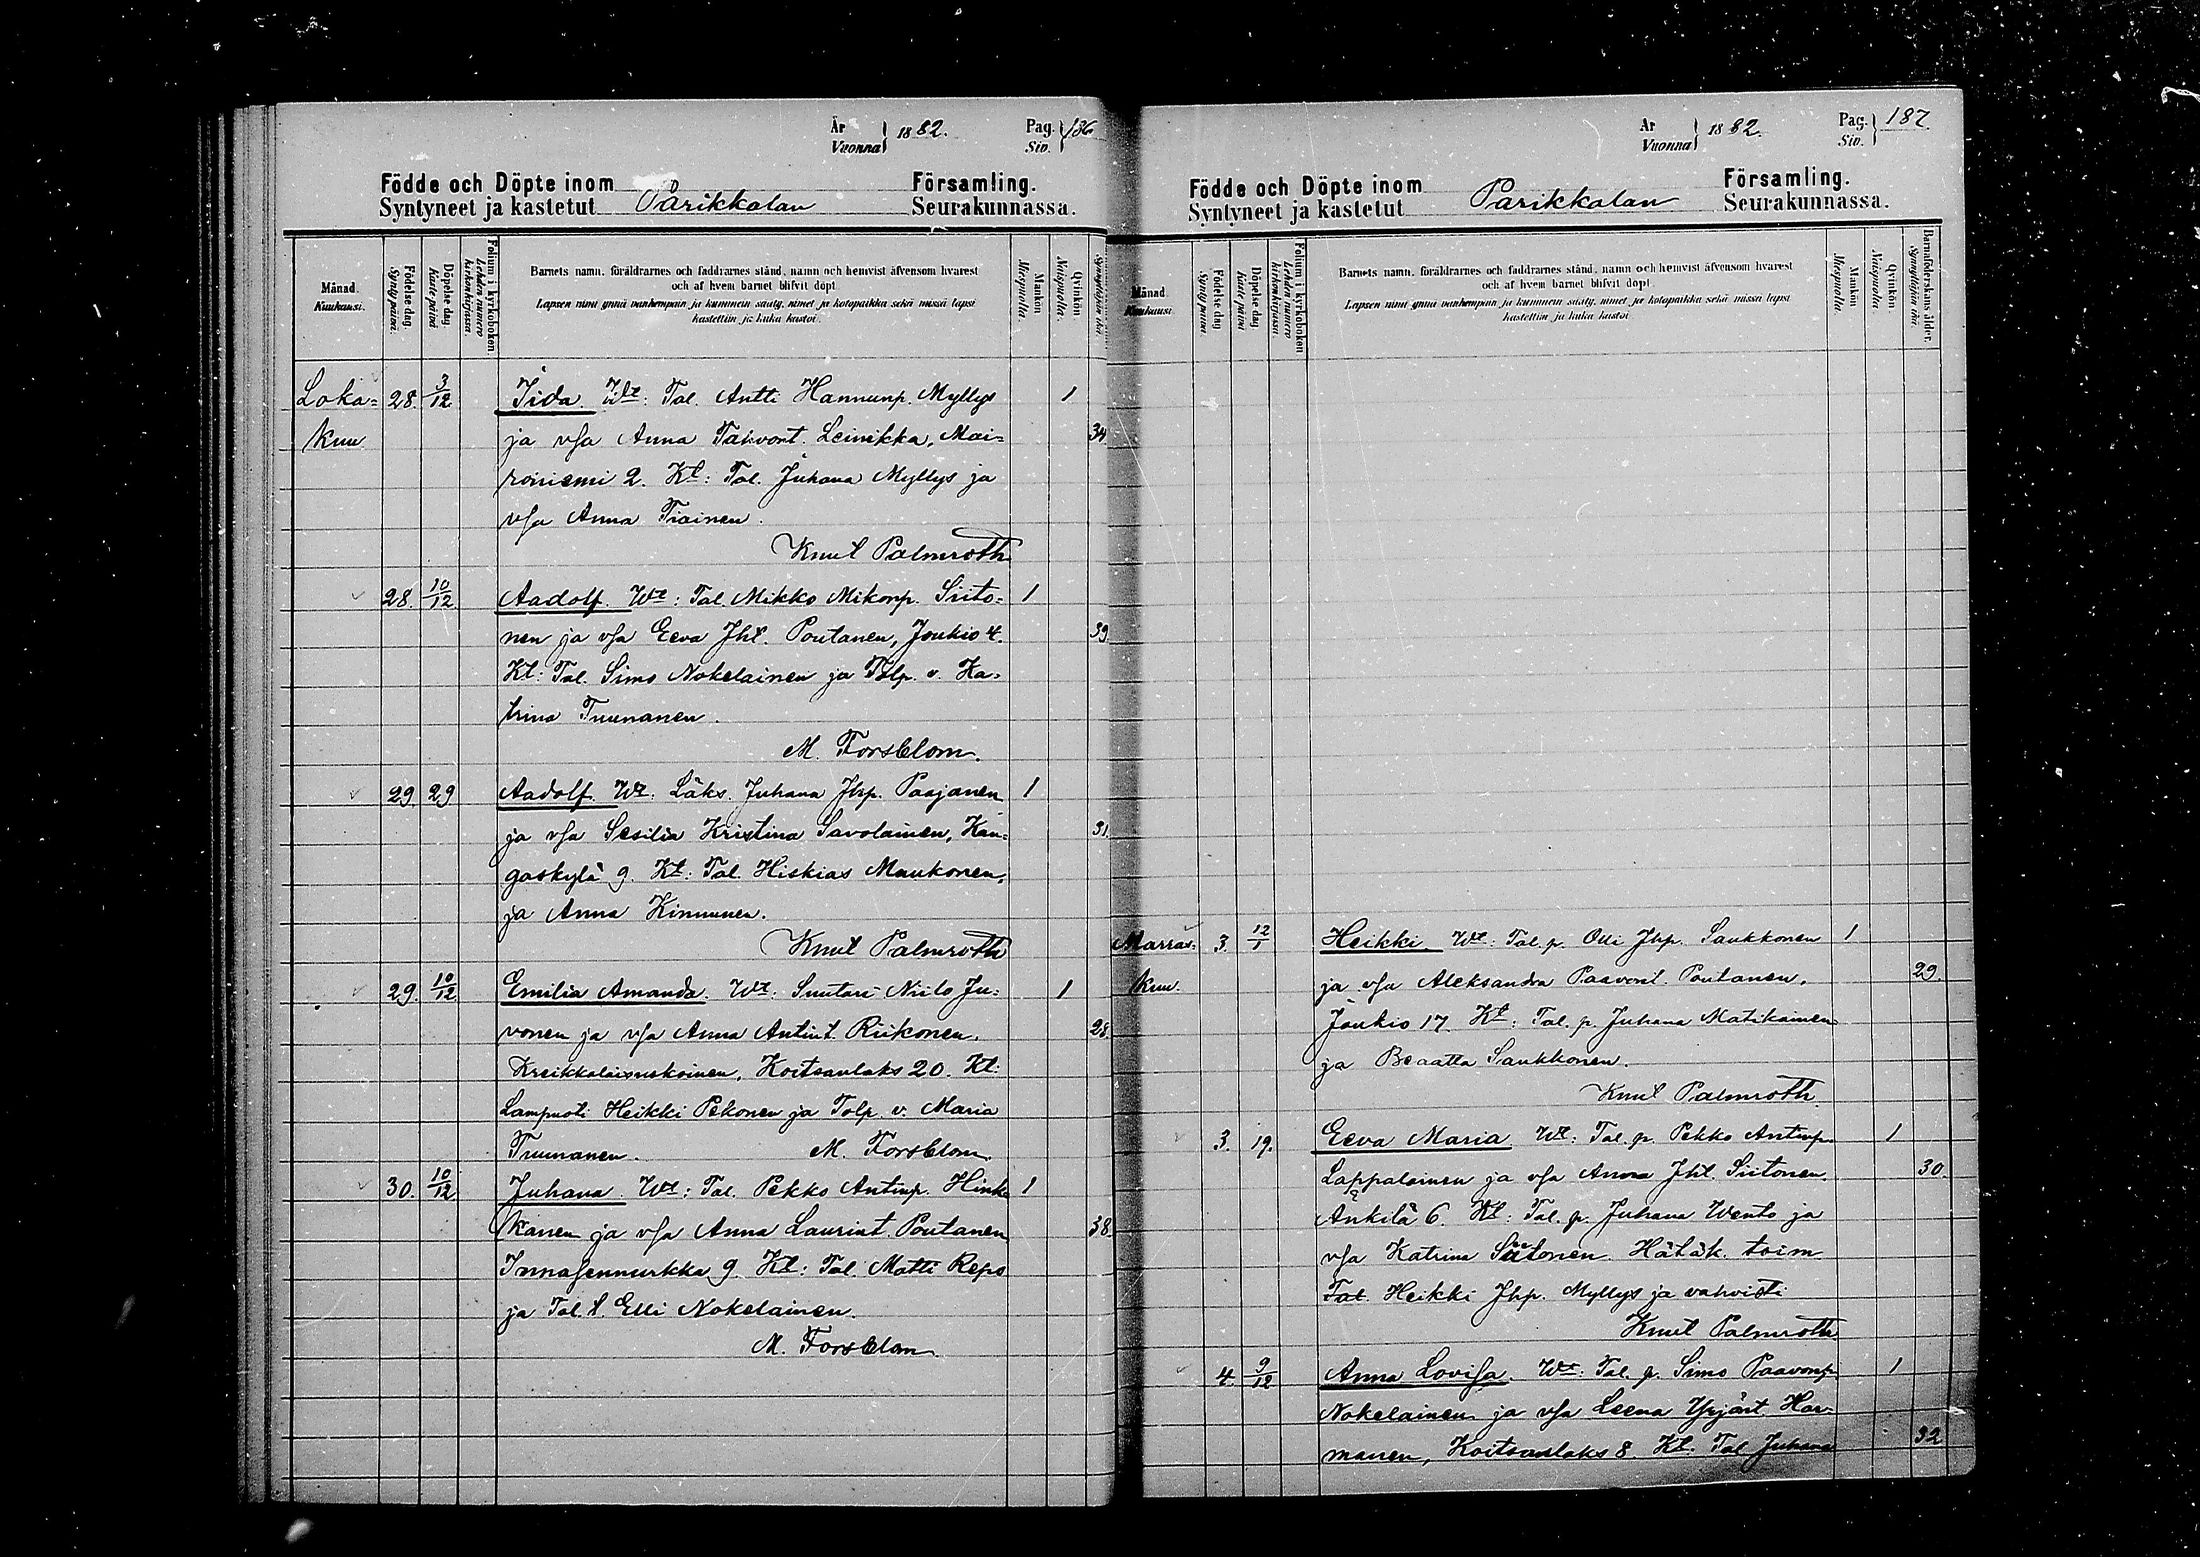 År
Vuonna
1882.
Pag.
Siv.
136
Födde och Döpte inom
Syntyneet ja kastetut
Parikkalan
Församling.
Seurakunnassa.
Månad.
Kuukausi.
Födelse dag.
Syntypäivä.
Döpelse dag
Kaste päivä
Folium i kyrkoboken.
Lehden numero kirkonkirjassa.
Barnets namn, föräldrarnes och faddrarnes stånd, namn och hemvist äfvensom hvarest
och af hvem barnet blifvit döpt.
Lapsen nimi ynnä vanhempain ja kummein sääty, nimet ja kotopaikka sekä missä lapsi
kastettiin ja kuka kastoi.
Mankön
Miespuolta.
Qvinkön
Naispuolta.
Loka= 28. 3/12 Iida. Wt: Tal. Antti Hannunp. Myllys 1
kuu ja vsa Anna Tahvont. Leinikka, Mai= 34.
roniemi 2. Kt: Tal. Juhana Myllys ja
vsa Anna Tiainen.
Knut Palmroth
28. 10/12 Aadolf. Wt: Tal. Mikko Mikonp. Siito= 1
nen ja vsa Eeva Jht. Poutanen, Joukio 4. 39.
Kt: Tal. Simo Nokelainen ja Tolp. v. Ka=
trina Tuunanen.
M. Forsblom.
29 29 Aadolf. Wt: Läks. Juhana Jhp. Paajanen 1
ja vsa Sesilia Kristina Savolainen, Kan= 31.
gaskylä 9. Kt: Tal. Hiskias Maukonen,
ja Anna Kinnunen.
Knut Palmroth
29. 10/12 Emilia Amanda. Wt: Suutari Niilo Ju= 1
vonen ja vsa Anna Antint. Riikonen. 28.
Kreikkalaisuskoinen, Koitsanlaks 20. Kt:
Lampuoti Heikki Pekonen ja Tolp. v. Maria
Tuunanen. M. Forsblom.
30. 10/12 Juhana. Wt: Tal. Pekko Antinp. Hink= 1
kanen ja vsa Anna Laurint. Poutanen 38.
Innasennurkka 9. Kt: Tal. Matti Repo
ja Tal. t. Elli Nokelainen.
M. Forsblom.
År
Vuonna
1882.
Pag.
Siv.
187.
Födde och Döpte inom
Syntyneet ja kastetut
Parikkalan
Församling.
Seurakunnassa.
Månad.
Kuukausi.
Födelse dag
Syntypäivä.
Döpelse dag
Kaste päivä
Folium i kyrkoboken
Lehden numero kirkonkirjassa.
Barnets namn, föräldrarnes och faddrarnes stånd, namn och hemvist äfvensom hvarest
och af hvem barnet blifvit döpt.
Lapsen nimi ynnä vanhempain ja kummein sääty, nimet ja kotopaikka sekä missä lapsi
kastettiin ja kuka kastoi.
Mankön
Miespuolta.
Qvinkön
Naispuolta.
Barnaföderskans ålder.
Synnyttäjän ikä.
Marras= 3. 12/1 Heikki. Wt: Tal. p. Olli Jhp. Saukkonen 1
kuu. ja vsa Aleksandra Paavont. Poutanen, 29.
Joukio 17. Kt: Tal. p. Juhana Matikainen
ja Beaatta Saukkonen.
Knut Palmroth.
3. 19. Eeva Maria. Wt: Tal. p. Pekko Antinp. 1
Lappalainen ja vsa Anna Jht. Siitonen, 30.
Ankilä 6. Kt: Tal. p. Juhana Wento ja
vsa Katrina Siitonen. Hätäk. toim.
Tal. Heikki Jhp. Myllys ja vahvisti
Knut Palmroth
4. 9/12 Anna Lovisa. Wt: Tal. p. Simo Paavonp. 1
Nokelainen ja vsa Leena Yrjönt. Har=
manen, Koitsanlaks 8. Kt: Tal. Juhana 32